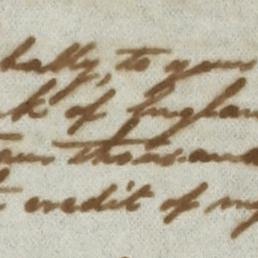 bally, to your
k of Englan
our thousand
t credit of my